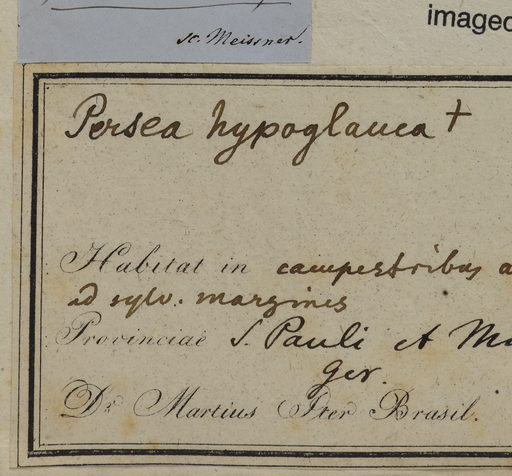 sc. Meissner.
imaged
Persea hypoglauca +
Habitat in campestribus a
ad sylv. margines
Provinciae S. Pauli et M
Ger.
Dr. Martius Iter Brasil.